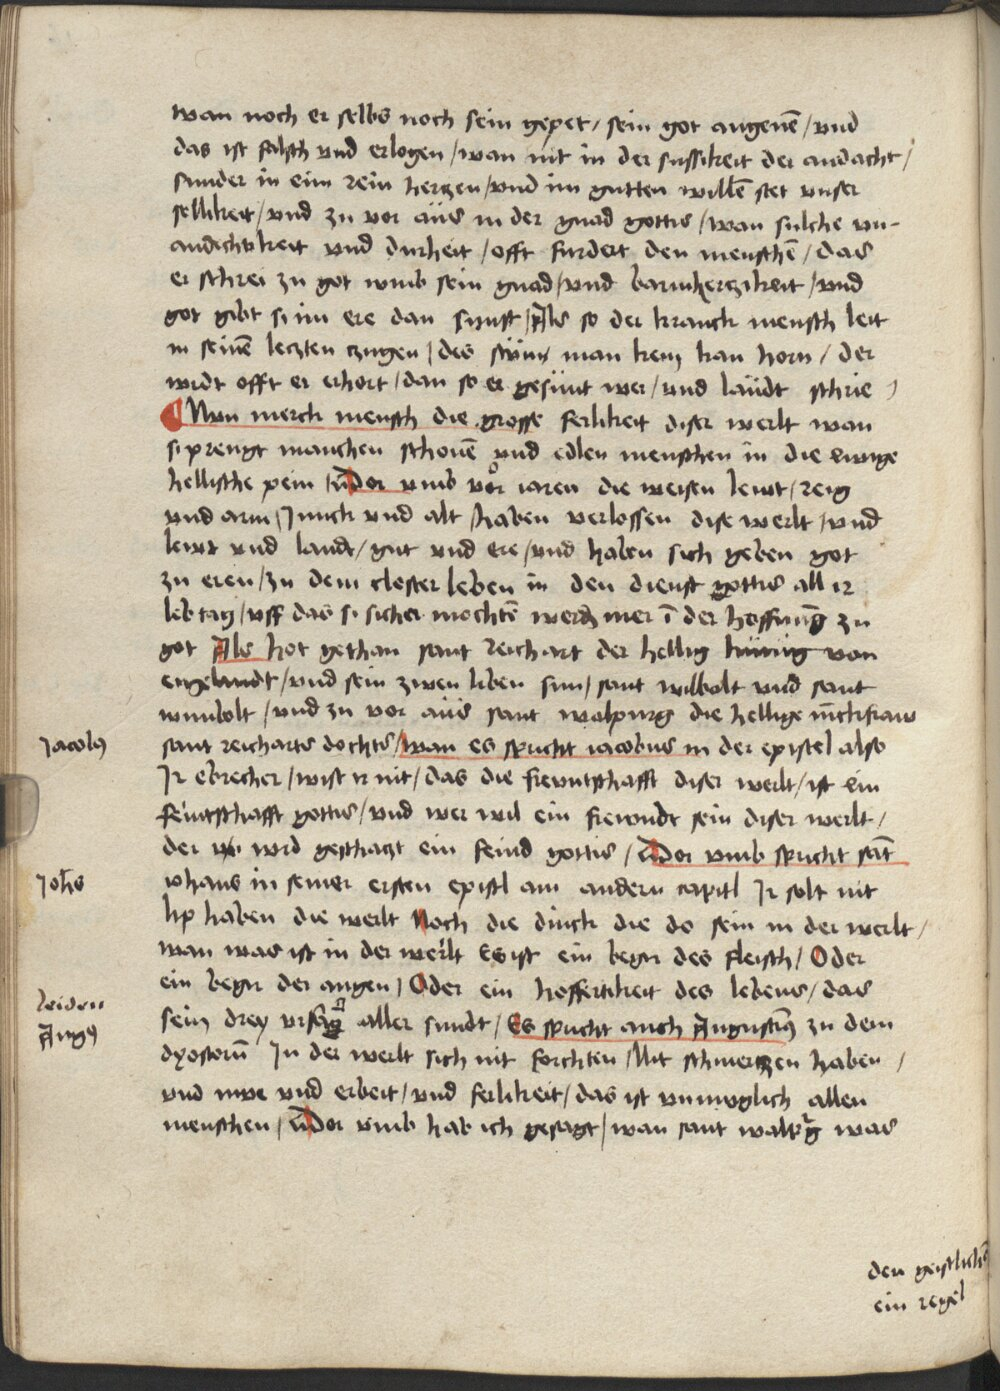 wan noch er selbs noch sein gepet / sein got angenē / vnd
das ist falsch vnd erlogen / wan nit in der sussikeit der andacht /
sunder in eim rein herczen / vnd im gutten willē stet vnser
sellikeit / vnd zu vor aüs in der gnad gottis / wan sulche vn-
andichtikeit vnd durheit / offt furdert den menschē / das
er schrei zu got vmb sein gnad / vnd barmherczikeit / vnd
got gibt si im ere dan sunst / Als so der kranck mensch leit
in seinē leczten czugen / des stüm man kem kan horn / der
wirdt offt er erhort / dan so er gesünt wer / vnd laüdt schrie /
Nvn merck mensch die grosse ferlikeit diser werlt wan
si prengt manchen schonē vnd edlen menschen in die ewige
hellische pein / Dor vmb vor iaren die weisen lewt / reig
vnd arm / Junck vnd alt / haben verlossen dise werlt / vnd
lewt vnd landt / gut vnd ere / vnd haben sich geben got
zu eren / zu dem closter leben in den dienst gottis all ir
lebtag / vff das si sicher mochtē werdn mer ī der hoffnūg zu
got Als hot gethan sant Reichart der hellig künig von
engelandt / vnd sein zwen liben sun / sant wilbolt vnd sant
wunbolt / vnd zu vor aüs sant walpurg die hellige iūckfraw
sant reicharts dochter / wan es spricht iacobus in der epistel also
Jacobꝰ
Ir ebrecher / wist ir nit / das die frewntschafft diser werlt / ist ein
feintschafft gottis / vnd wer wil ein frewndt sein diser werlt /
der wird geschaczt ein feind gottis / Dor vmb spricht sāt
Johēs
iohans in seiner ersten epistl am andern capitl Ir solt nit
lip haben die werlt Noch die dinck die do sein in der werlt /
wan was ist in der werlt Es ist ein begir des fleisch / Oder
ein begir der augen / Oder ein hoffertikeit des lebens / das
leiden
sein drey vrsāg aller sundt / Es spricht auch Augustinꝰ zu dem
Augꝰ
dyoscorū In der werlt sich nit forchten / Nit schmerczen haben /
vnd mve vnd erbeit / vnd ferlikeit / das ist vnmoglich allen
menschen / Dor vmb hab ich gesagt / wan sant walprg was
den geistlichē
ein regel